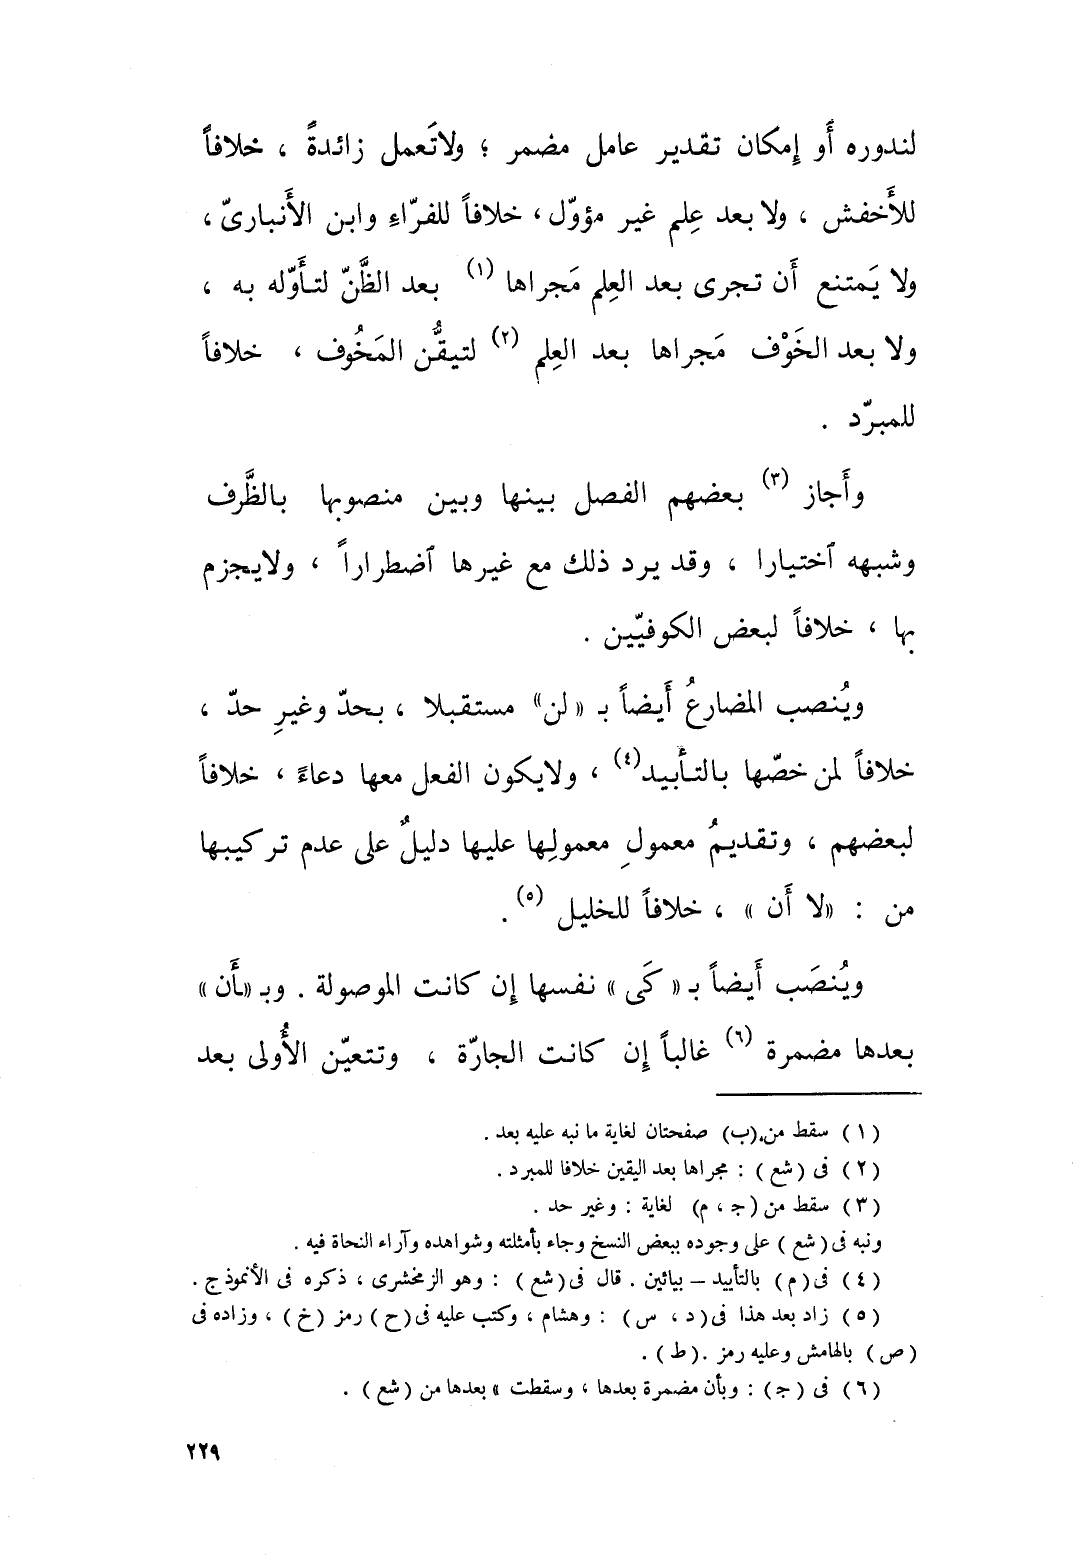 لندوره أَو إِمكان تقدير عامل مضمر ؛ ولاتَعمل زائدةً ، خلافاً
للأَخفش ، ولا بعد عِلم غير مؤوّل ، خلافاً للفرّاءِ وابن الأَنبارىّ ،
ولا يَمتنع أَن تجرى بعد العِلم مَجراها (١) بعد الظَّنّ لتأَوّله به ،
ولا بعد الخَوْف مَجراها بعد العِلم (٢) لتيقُّن المَخُوف ، خلافاً
للمبرّد .
وأَجاز (٣) بعضهم الفصل بينها وبين منصوبها بالظَّرف
وشبهه ٱختيارا ، وقد يرد ذلك مع غيرها ٱضطراراً ، ولايجزم
بها ، خلافاً لبعض الكوفيّين .
ويُنصب المضارعُ أَيضاً بـ «لن» مستقبلا ، بحدّ وغيرِ حدّ ،
خلافاً لمن خصّها بالتأبيد (٤) ، ولايكون الفعل معها دعاءً ، خلافاً
لبعضهم ، وتقديمُ معمولِ معمولِها عليها دليلٌ على عدم تركيبها
من : «لا أَن » ، خلافاً للخليل (٥) .
ويُنصَب أَيضاً بـ « كَى » نفسها إِن كانت الموصولة . وبـ «أَن »
بعدها مضمرة (٦) غالباً إِن كانت الجارّة ، وتتعيّن الأُولى بعد
(١) سقط من (ب) صفحتان لغاية ما نبه عليه بعد .
(٢) فى (شع) : مجراها بعد اليقين خلافا للمبرد .
(٣) سقط من (جـ ، م) لغاية : وغير حد .
ونبه فى (شع) على وجوده ببعض النسخ وجاء بأمثلته وشواهده وآراء النحاة فيه .
(٤) فى (م) بالتأييد – بيائين . قال فى (شع) : وهو الزمخشرى ، ذكره فى الأنموذج .
(٥) زاد بعد هذا فى (د ، س) : وهشام ، وكتب عليه فى (ح) رمز (خ) ، وزاده فى
(ص) بالهامش وعليه رمز . (ط) .
(٦) فى (جـ) : وبأن مضمرة بعدها ، وسقطت » بعدها من (شع) .
٢٢٩